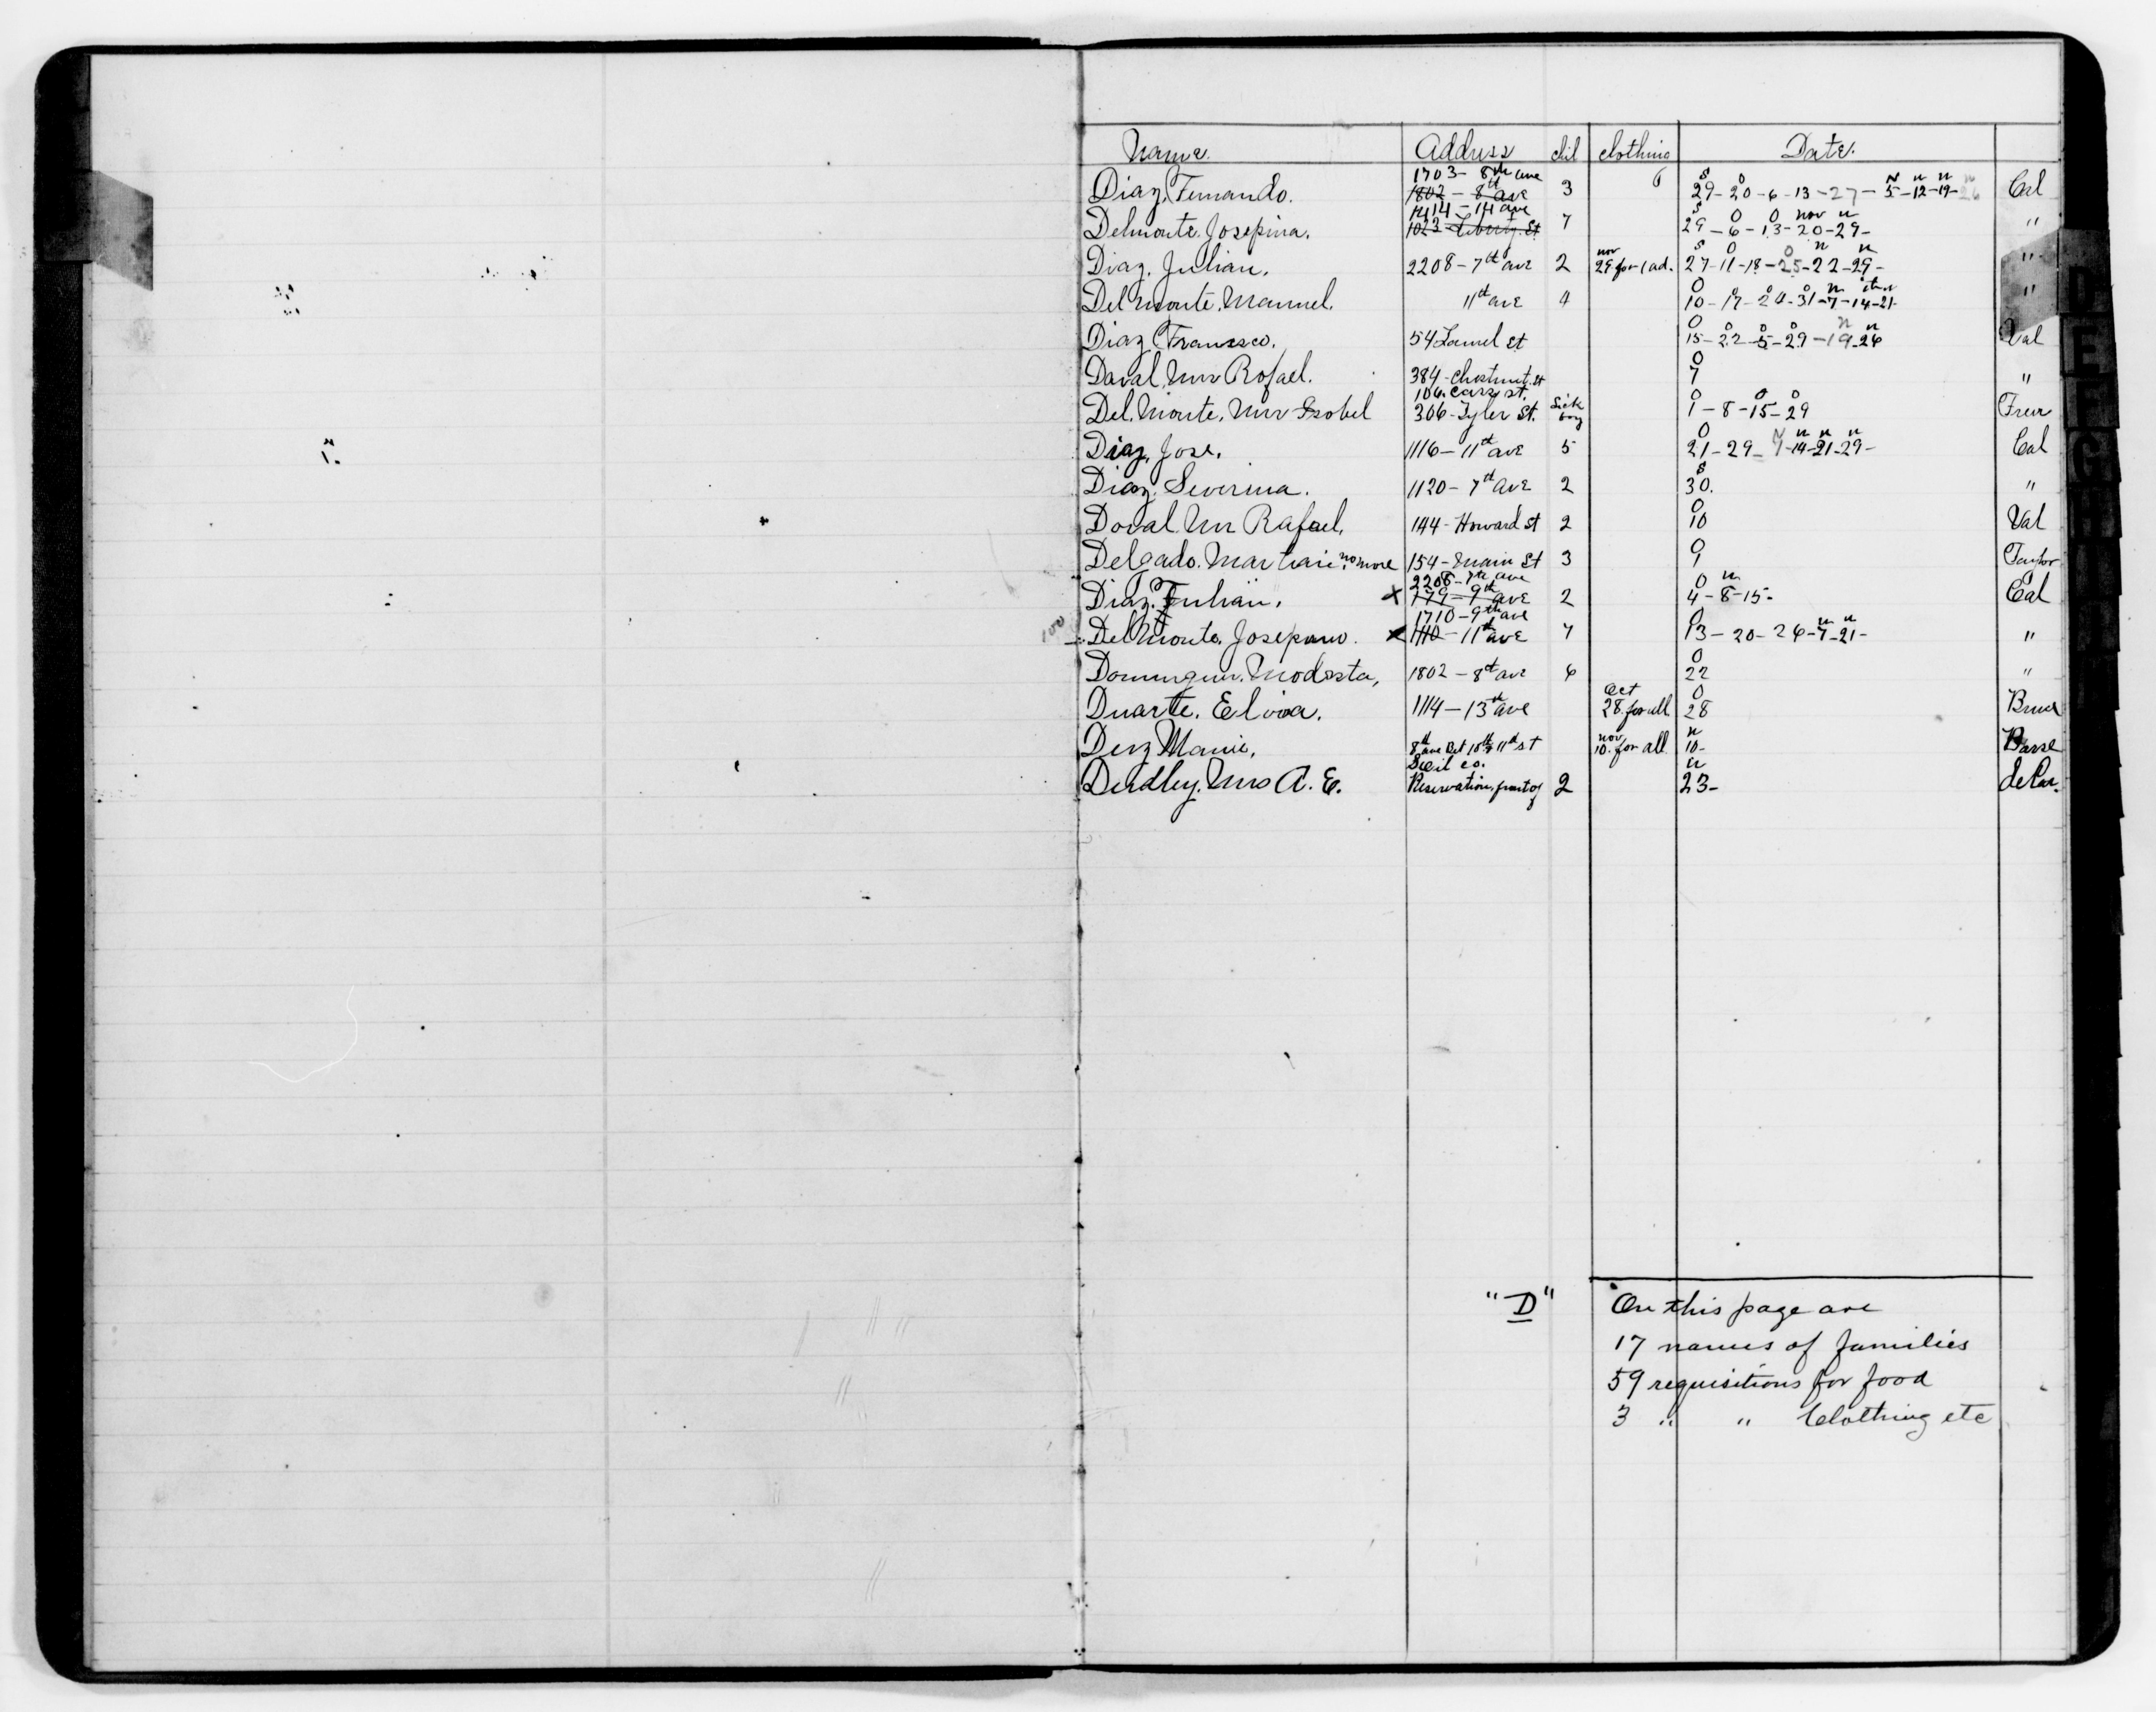 Name. Address chil clothing Date.
1703 - 8th ave
Diaz, Fernando. 1802 - 8th ave 3 6 29-20-6-13-27-5-12-19-26 Cal
1414 - 14 ave
Delmonte. Josepina. 1023 - Liberty. St 7 29-6-13-20-29- "
Diaz. Julian. 2208 - 7th ave 2 nov 29 for 1 ad. 27-11-18-25-22-29- "
Del monte. Manuel. 11th ave 4 10-17-24-31-7-14-21- "
Diaz Francisco. 54 Laurel St 15-22-5-29-19-26 Val
Doval, Mrs Rofael. 384 - Chestnut. St 7 "
106. Cass St.
Del. Monte. Mrs Isobel 306 - Tyler St. Sick boy 1-8-15-29
Diaz, Jose. 1116 - 11th ave 5 21-29-7-14-21-29- Cal
Diaz. Severina. 1120 - 7th ave 2 30. "
Doval Mrs Rafael, 144 - Howard St 2 10 Val
Delgado. no more 154 - Main St 3 9 Taylor
2208 - 7th ave
Diaz. Julian. x 779 - 9th ave 2 4-8-15- Cal
1710 - 9th ave
100 Del Monte. x 1110 - 11th ave 7 13-20-26-7-21- "
Modesta, 1802 - 8th ave 6 22 "
Duarte. Elvira. 1114 - 13th ave Oct 28. for all 28
8th ave Bet 10th & 11th St nov 10. for all 10-
Mrs A. E. Reservation, front of 2 23-
"D" On this page are
17 names of families
59 requisitions for food
3 " " Clothing etc